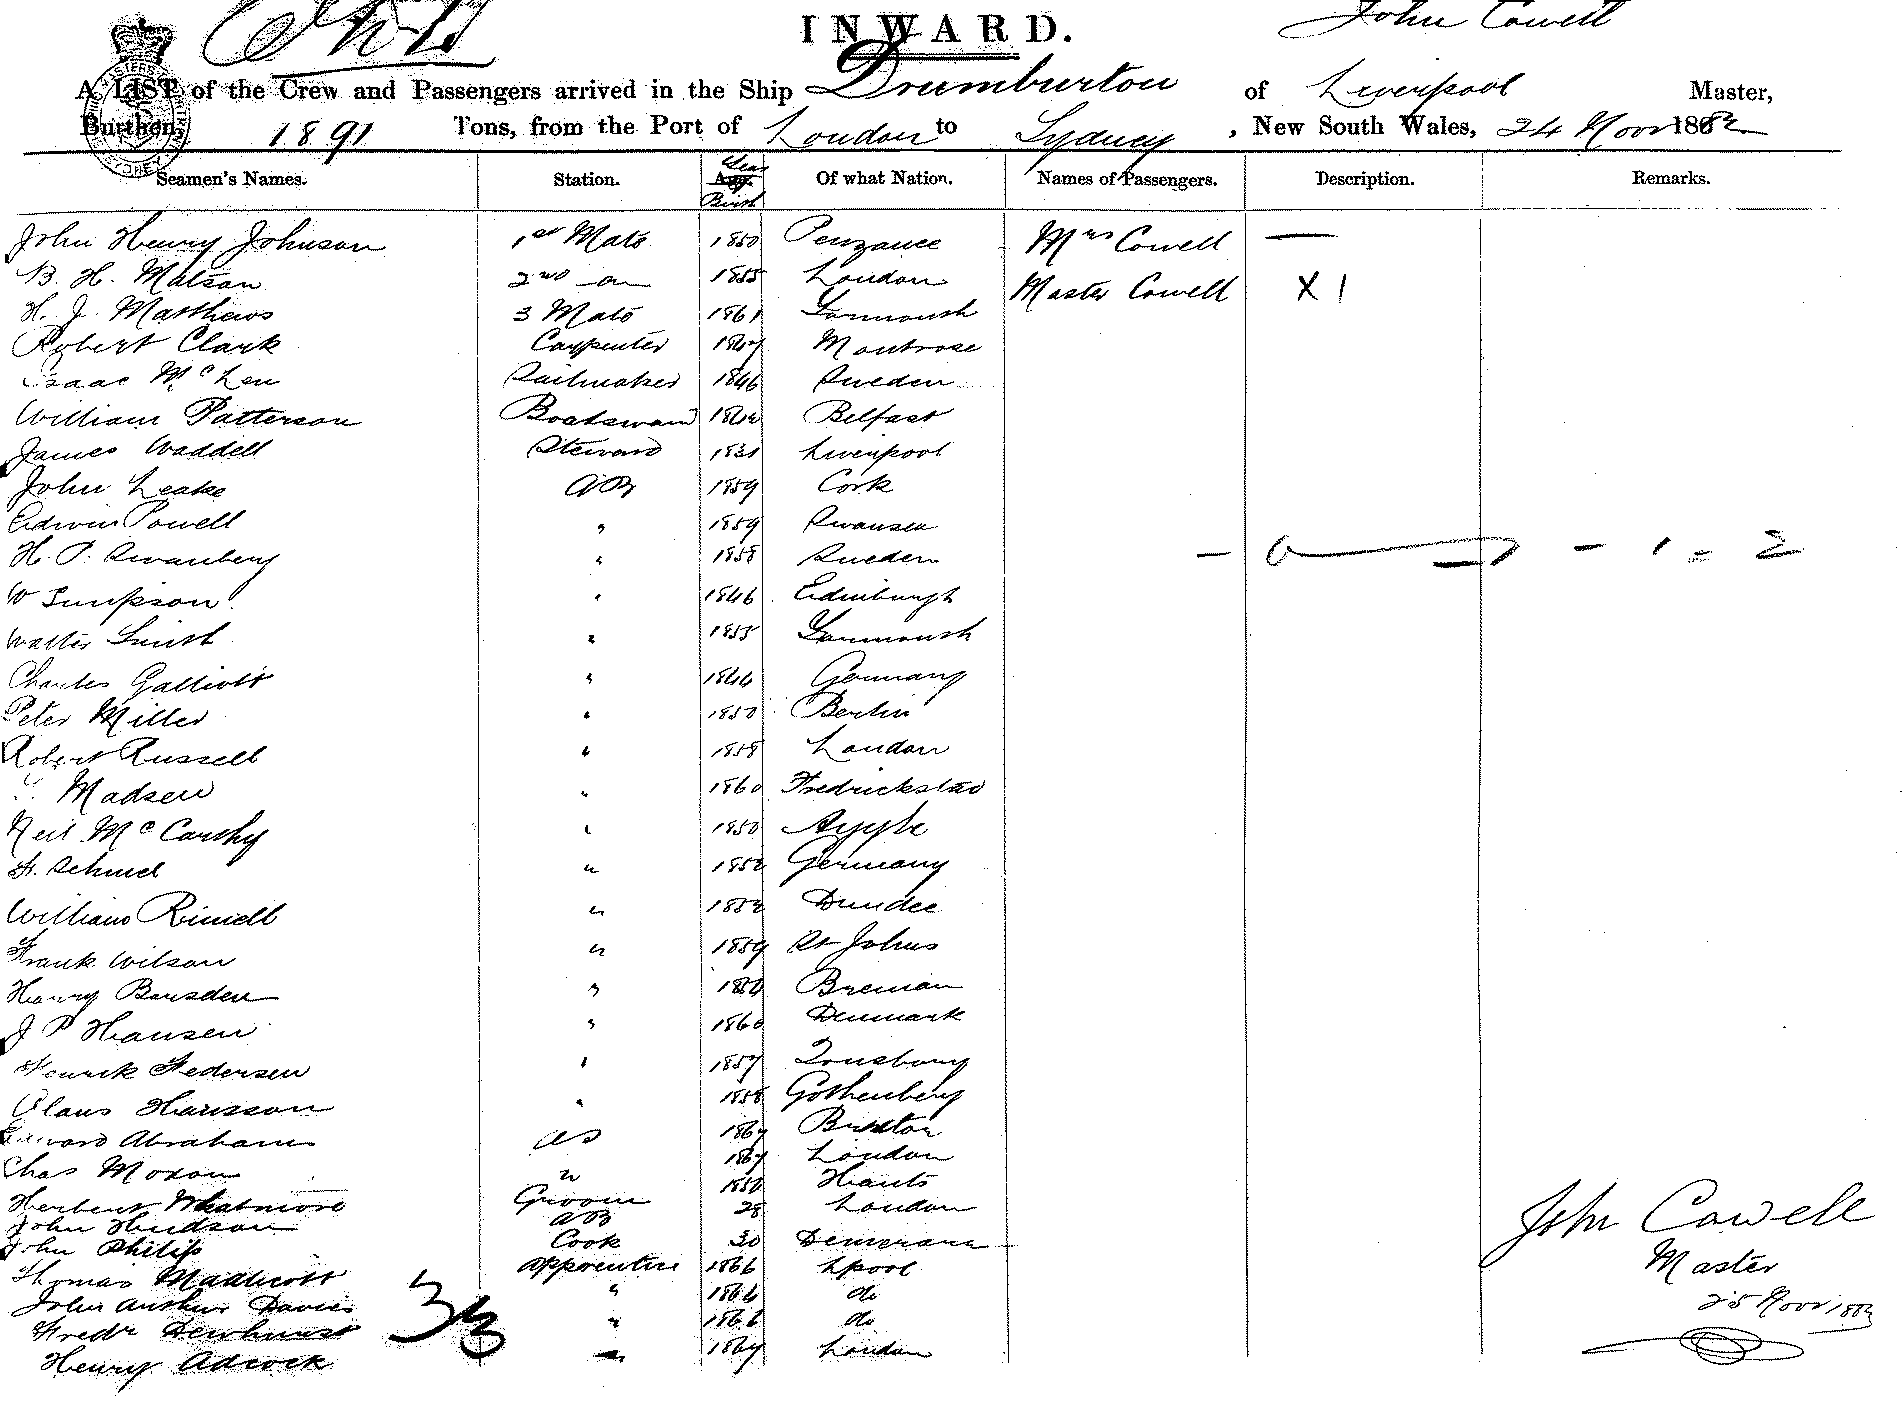 INWARD. John Cowell
A LIST of the Crew and Passengers arrived in the Ship Drumburton of Liverpool Master,
Burthen, 1891 Tons, from the Port of London to Sydney, New South Wales, 24 Novr 1882
Seamen's Names. Station. Year Birth Of what Nation. Names of Passengers. Description. Remarks.
John Henry Johnson 1st Mate 1850 Penzance Mrs Cowell —
B. H. Matson 2nd do 1855 London Master Cowell X 1
H. J. Matthews 3 Mate 1861 Yarmouth
Robert Clark Carpenter 1847 Montrose
Isaac Mc Len Sailmaker 1846 Sweden
William Patterson Boatswain Belfast
James Waddell Steward 1831 Liverpool
John Leake AB 1859 Cork
Edwin Powell " 1859 Swansea
H. P. Swanberg " 1858 Sweden — 1 = 2
W Simpson " 1846 Edinburgh
Walter Smith " 1855 Yarmouth
Charles Galliott " 1844 Germany
Peter Miller " 1850 Berlin
Robert Russell " 1858 London
Madsen " 1860 Fredrickstad
Neil Mc Carthy " 1850 Argyle
Fr. Schmel " 1852 Germany
William Rimell " 1852 Dundee
Frank Wilson " 1859 St Johns
Henry Bousden " Breman
J P Hansen " 1860 Denmark
Henrik Pedersen " 1857 Tonsburg
Claus Hansson " 1858 Gothenberg
Edward Abrahams OS 1867 Brixton
Chas Moxon " 1867 London
Herbert Whatmore Groom Hants
John Hudson AB 28 London
John Philip Cook 30 Demerara
Thomas Madhcott Apprentice 1866 Lpool
John Arthur Davies " 1866 do
Fredk Dewhurst " 1866 do
Henry Adcock " 1867 London
33
John Cowell
Master
25 Novr 1882